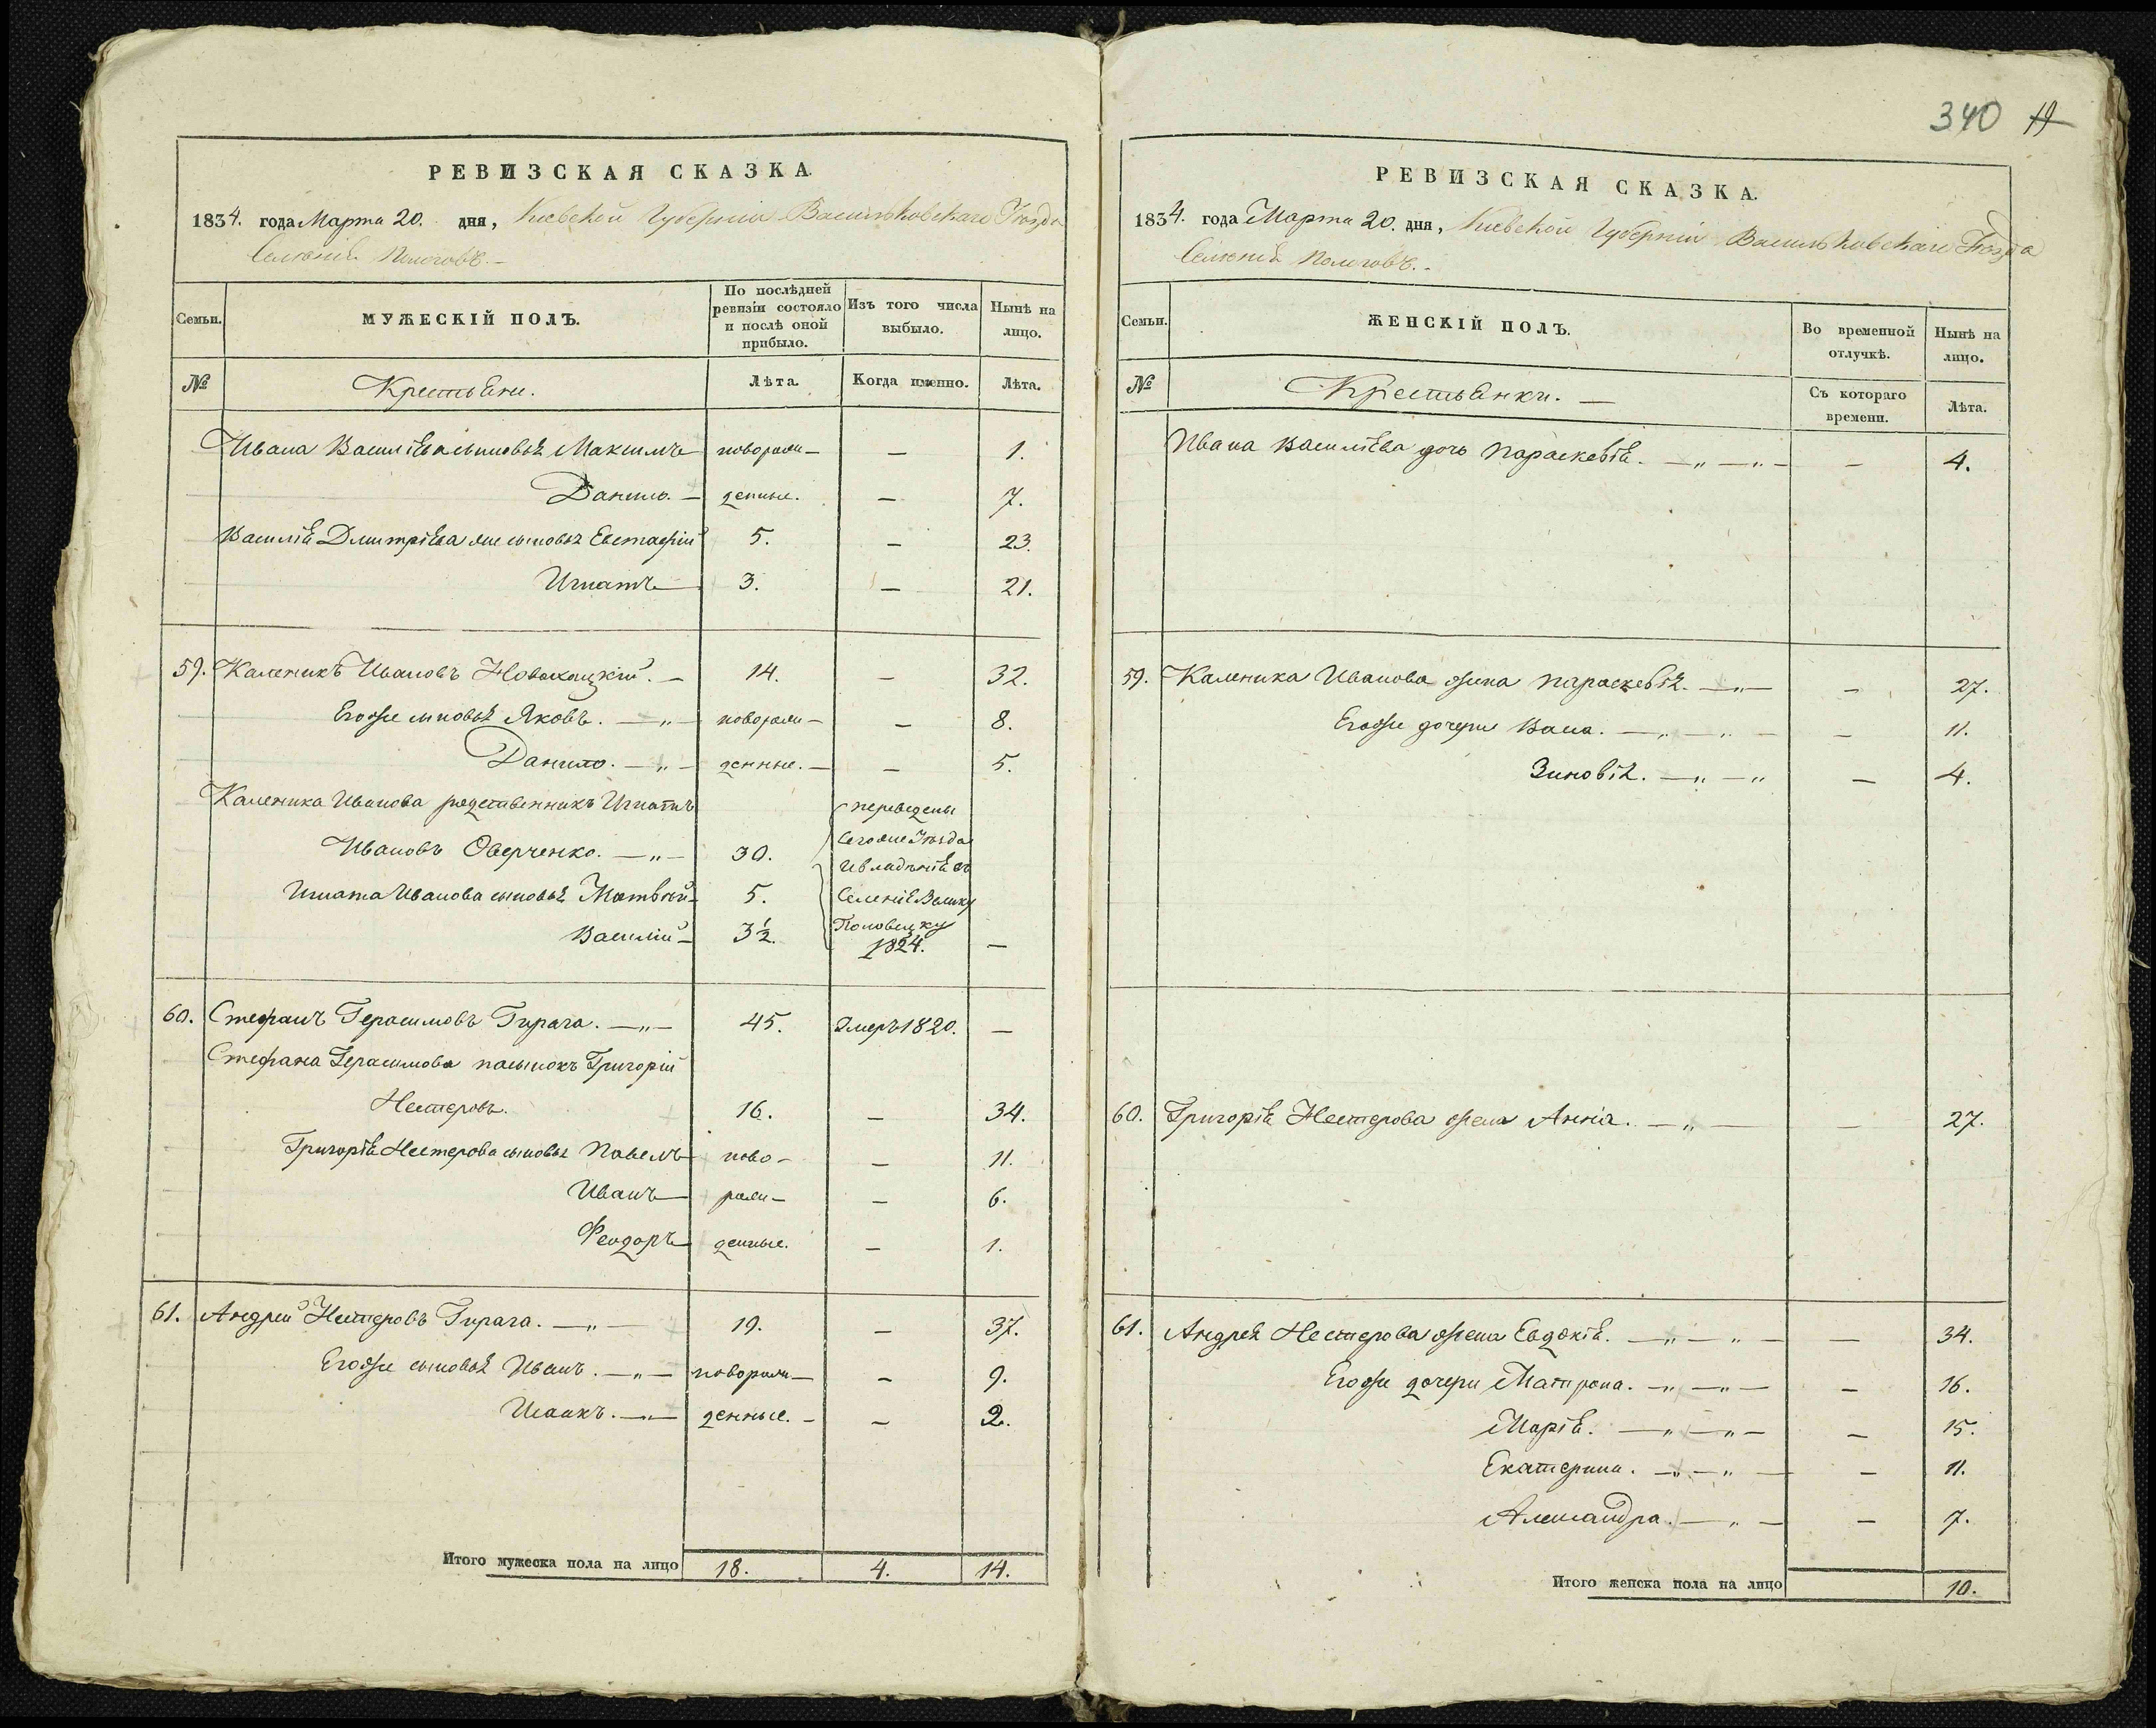 РЕВИЗСКАЯ СКАЗКА.
1834. года Марта 20. дня, Кіевской Губерніи Васильковскаго Уѣзда
Селенія Пологовъ.
Семьи.
МУЖЕСКІЙ ПОЛЪ.
По послѣдней ревизіи состояло и послѣ оной прибыло.
Изъ того числа выбыло.
Нынѣ на лицо.
№ Крестьяне. Лѣта. Когда именно. Лѣта.
Ивана Василіева сыновья Максимъ новорож— — 1.
Данило. — денные. — 7.
Василія Дмитріева же сыновья Евстафій 5. — 23.
Игнатъ 3. — 21.
59. Каленикъ Ивановъ 14. — 32.
Егоже сыновья Яковъ. —„— новорож— — 8.
Данило. —„— денные. — — 5.
Каленика Иванова родственникъ Игнатъ переведены
Ивановъ Оверченко. —„— 30. сегоже Уѣзда
Игната Иванова сыновья Матвѣй 5. и владѣнія въ
Василій — 3½. Селеніе Велику Половецку 1824. —
60. Стефанъ Герасимовъ Гирача. —„— 45. Умеръ 1820. —
Стефана Герасимова пасынокъ Григорій
Нестеровъ. 16. — 34.
Григорія Нестерова сыновья Павелъ ново— — 11.
Иванъ рож— — 6.
Феодоръ денные. — 1.
61. Андрей Нестеровъ Гирача. —„— 19. — 37.
Егоже сыновья Иванъ. —„— новорож— — 9.
Исаакъ. —„— денные. — — 2.
Итого мужеска пола на лицо 18. 4. 14.
340 19
РЕВИЗСКАЯ СКАЗКА.
1834. года Марта 20. дня, Кіевской Губерніи Васильковскаго Уѣзда
Селенія Пологовъ.
Семьи.
ЖЕНСКІЙ ПОЛЪ.
Во временной отлучкѣ.
Нынѣ на лицо.
№ Крестьянки. — Съ котораго времени. Лѣта.
Ивана Василіева дочь Параскевія. —„—„— — 4.
59. Каленика Иванова жена Параскевія. —„— — 27.
Егоже дочери Васа. —„—„— — 11.
Зиновія. —„—„ — 4.
60. Григорія Нестерова жена Анна. —„— — 27.
61. Андрея Нестерова жена Евдокія. —„—„— — 34.
Егоже дочери Матрона. —„—„— — 16.
Марія. —„—„— — 15.
Екатерина. —„—„— — 11.
Александра. —„— — 7.
Итого женска пола на лицо 10.